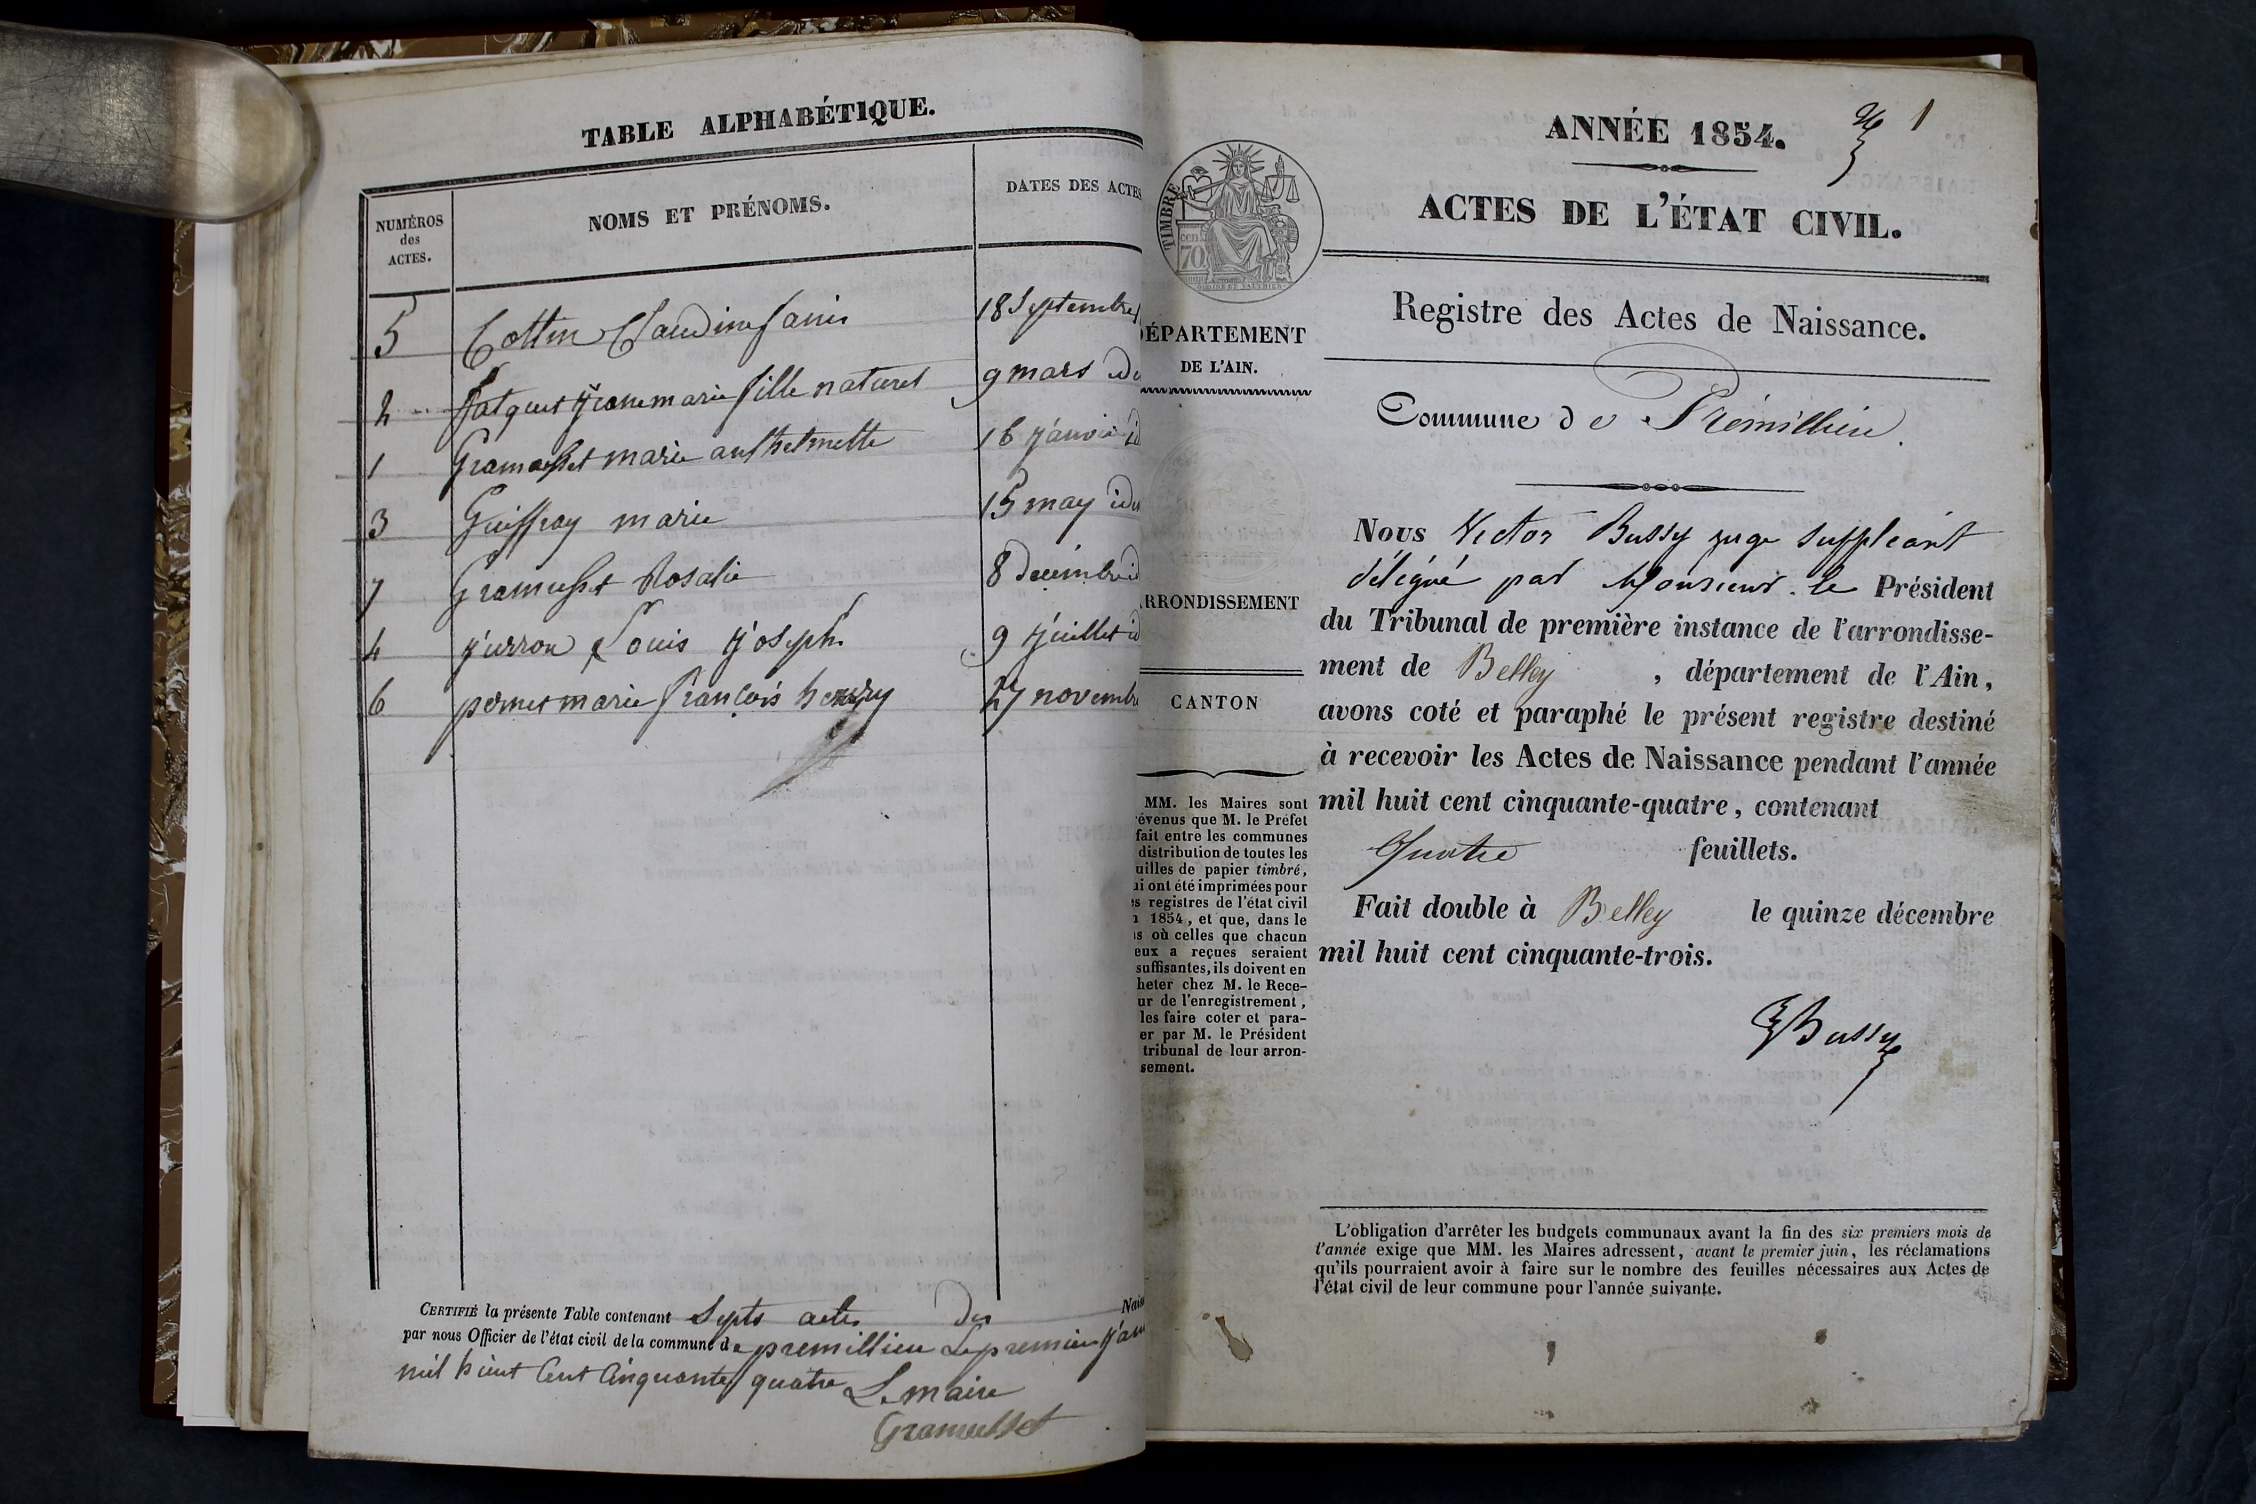 TABLE ALPHABÉTIQUE.
NUMÉROS
des
ACTES.
NOMS ET PRÉNOMS.
DATES DES ACTES
5 Cottin Claudine fanis 18 Septembre
2 fatquet jeanne marie fille naturel 9 mars idu
1 Gramusset marie anthelmette 16 janvié id
3 Guiffray marie 15 may idu
7 Gramusset Rosalie 8 decembre id
4 jurron Louis joseph 9 juillet id
6 pernet marie françois henry 27 novembre
CERTIFIÉ la présente Table contenant Septs actes des Nais
par nous Officier de l'état civil de la commune de premillieu Le premier jan
mil huit Cent Cinquante quatre Le maire
Gramusset
1
ANNÉE 1854.
ACTES DE L'ÉTAT CIVIL.
TIMBRE
cen.
70
ÉPARTEMENT
DE L'AIN.
RRONDISSEMENT
CANTON
MM. les Maires sont
évenus que M. le Préfet
fait entre les communes
distribution de toutes les
uilles de papier timbré,
ui ont été imprimées pour
es registres de l'état civil
1854, et que, dans le
s où celles que chacun
eux a reçues seraient
suffisantes, ils doivent en
heter chez M. le Rece-
ur de l'enregistrement,
les faire coter et para-
er par M. le Président
tribunal de leur arron-
sement.
Registre des Actes de Naissance.
Commune de Prémillieu.
Nous Victor Bussy juge suppléant
délégué par Monsieur le Président
du Tribunal de première instance de l'arrondisse-
ment de Belley, département de l'Ain,
avons coté et paraphé le présent registre destiné
à recevoir les Actes de Naissance pendant l'année
mil huit cent cinquante-quatre, contenant
Quatre feuillets.
Fait double à Belley le quinze décembre
mil huit cent cinquante-trois.
Bussy
L'obligation d'arrêter les budgets communaux avant la fin des six premiers mois de
l'année exige que MM. les Maires adressent, avant le premier juin, les réclamations
qu'ils pourraient avoir à faire sur le nombre des feuilles nécessaires aux Actes de
l'état civil de leur commune pour l'année suivante.